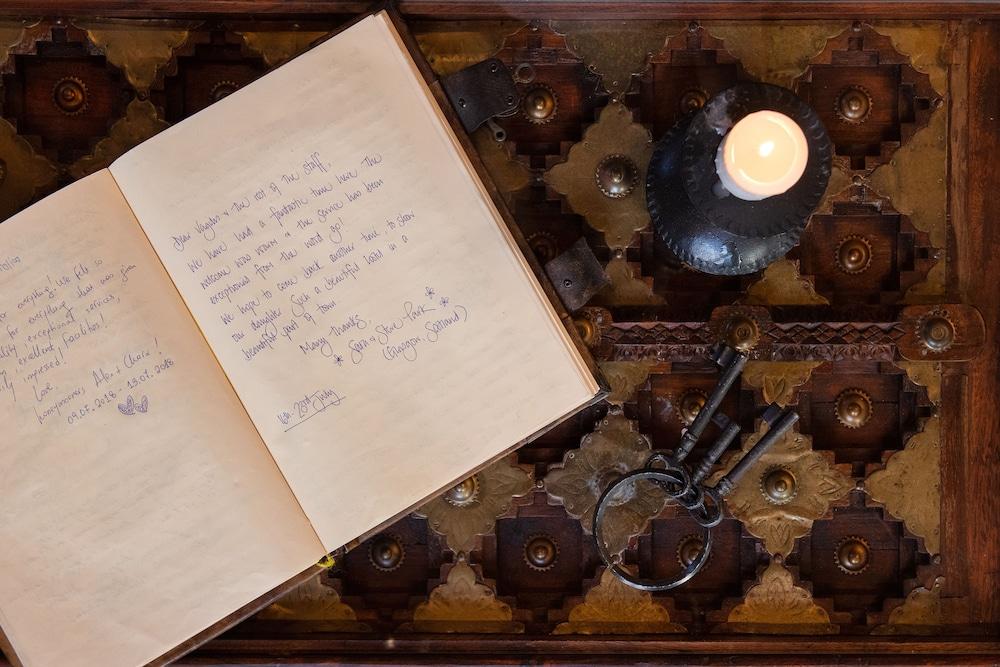 everything! We felt so
for everything that was from
exceptional services,
excellent facilities!
impressed!
Love,
honeymooners, Alex + Chaira!
09.07.2018 - 13.07.2018
Dear Vaughan & the rest of the staff,
We have had a fantastic time here. The
welcome was warm & the service has been
exceptional from the word go!
We hope to come back another time, to show
our daughter such a beautiful hotel in a
beautiful part of town.
Many thanks,
Sara & Steve Park
(Glasgow, Scotland)
23rd July